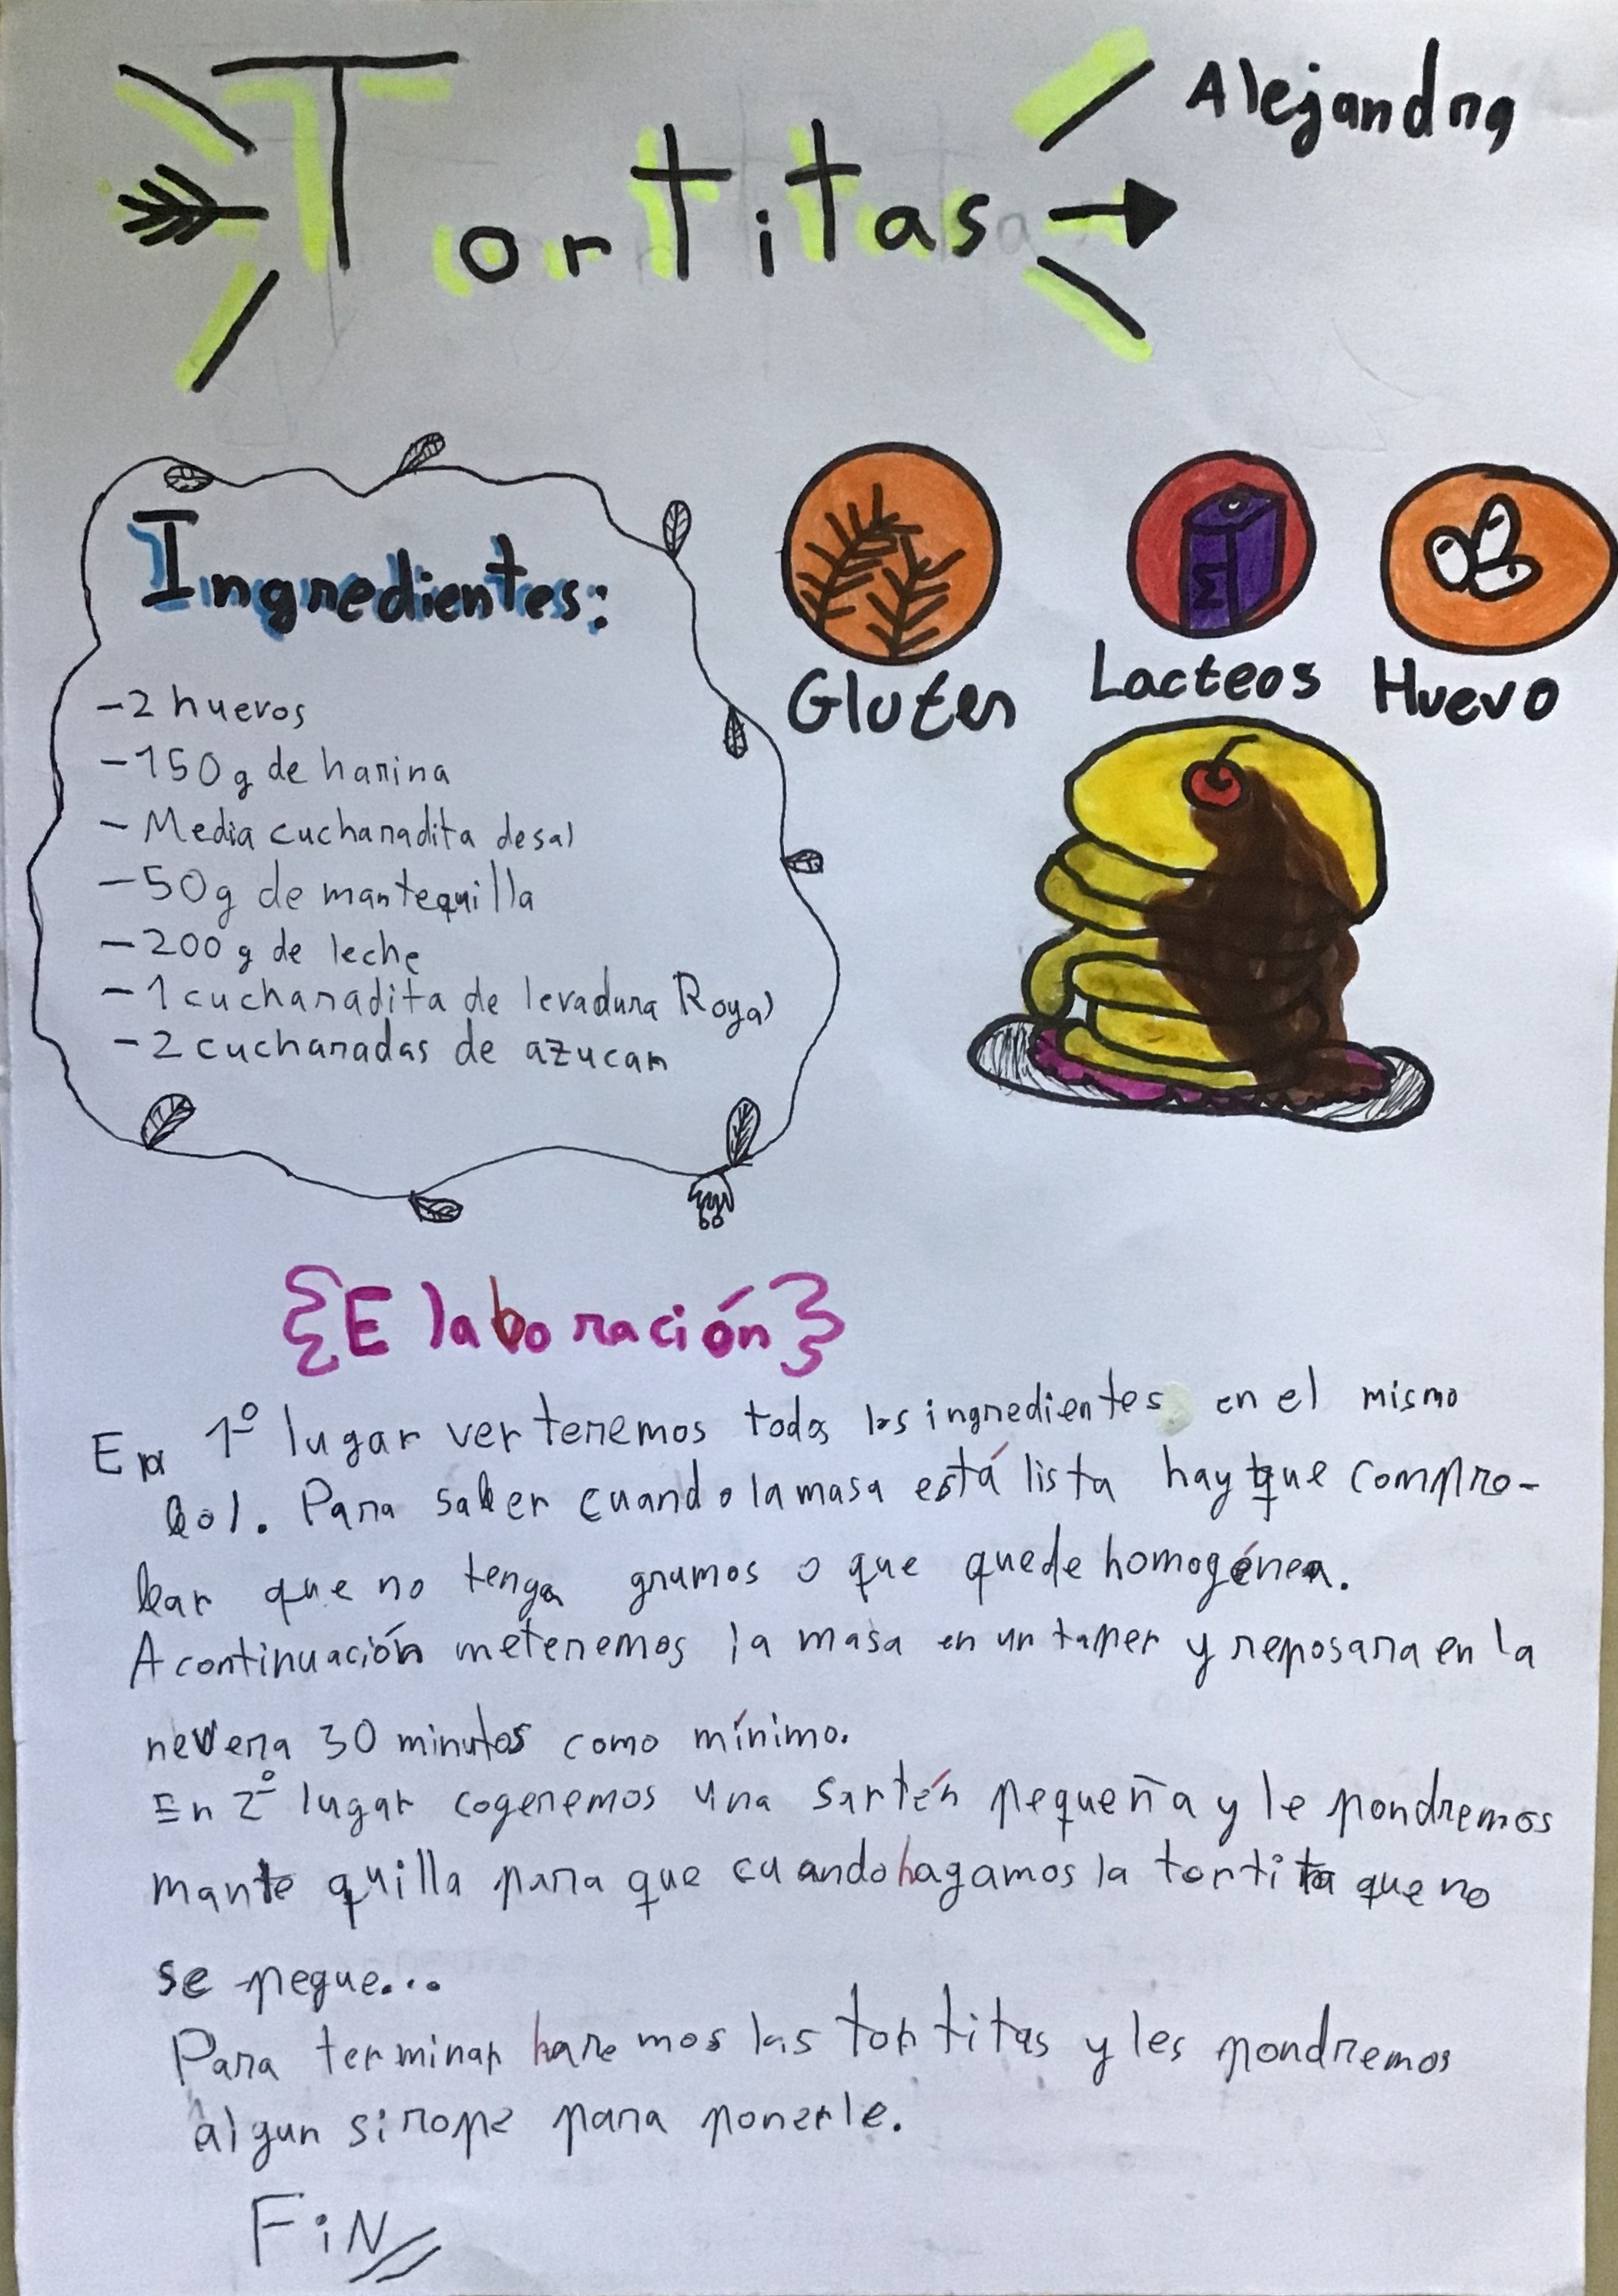 Tortitas
Alejandra
Ingredientes:
-2 huevos
-150g de harina
- Media cucharadita de sal
-50g de mantequilla
-200g de leche
-1 cucharadita de levadura Royal
-2 cucharadas de azucar
Gluten
Lacteos
Huevo
{Elaboración}
En 1º lugar verteremos todos los ingredientes en el mismo
bol. Para saber cuando la masa está lista hay que compro-
bar que no tenga grumos o que quede homogénea.
A continuación meteremos la masa en un taper y reposara en la
nevera 30 minutos como mínimo.
En 2º lugar cogeremos una sartén pequeña y le pondremos
mantequilla para que cuando hagamos la tortita que no
se pegue...
Para terminar haremos las tortitas y les pondremos
algun sirope para ponerle.
FiN